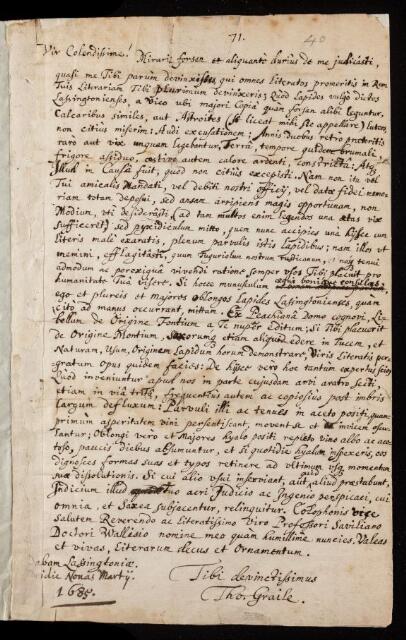 71.
40
Vir Colendissime! Mirari forsan et aliquanto durius de me judicasti,
quasi me Tibi parùm devinxisses qui omnes Literatos promeritis in Rem
Tuis Literariam Tibi plurimum devinxeris; Quòd Lapides vulgò dictos
Lassingtonienses, a Vico ubi majori Copiâ quàm forsan alibi leguntur,
Calcaribus similes, aut Astroites (si liceat mihi sic appellare) luteos
non citiùs miserim: Audi excusationem; Annis duobus retrò præteritis
rarò aut vix unquam legebantur, Terrâ, tempore quidem brumali
frigore assiduo, æstivo autem calore ardenti, constrictâ; Atq
Illud in Causâ fuit, quod non citiùs excepisti. Nam non ita vel
Tui amicalis Mandati, vel debiti nostri officij, vel datæ fidei memo-
riam totam deposui, sed ansam arripiens magis opportunam, non
Modium, uti desiderâsti (ad tantos enim Legendos una ætas vix
sufficeret) sed pyxidiculum mitto, quem nunc accipies unà hisce cum
literis malè exaratis, plenum parvulis istis Lapidibus; nam illos ut
memini, efflagitâsti, quum Tuguriolum nostrum rusticanum, et
admodum ac porexiguâ vivendi ratione semper usos Tibi placuit pro
humanitate Tuâ visere. Si hocce munusculum æqui boniq; consulas;
ego et plureis et majores oblongos Lapides Lassingtonienses, quàm
citò ad manus occurrant, mittam. Ex Beachionâ Domo cognovi, Li-
bellum de Origine Fontium a Te nuper Editum; Si Tibi placuerit
de Origine Montium, Saxorumq etiam aliquid edere in Lucem, et
Naturam, Usum, Originem Lapidum horum demonstrare, Viris Literatis per-
gratum Opus quidem facies: De hisce verò hoc tantùm expertus scio,
Quòd inveniuntur apud nos in parte cujusdam arvi aratro sciti
etiam in viâ tritâ, frequentiùs autem ac copiosiùs post imbris
largum defluxum: Parvuli illi ac tenues in aceto positi, quàm-
primum asperitatem vini persentiscant, movent se et ab invicem oscu-
lantur; Oblongi verò et Majores hyalo positi repleto vino albo ac ace-
toso, paucis diebus absumuntur, et si quotidie hyalum inspexeris, eos
dignosces formas suas et typos retinere ad ultimum usq momentum
suæ dissolutionis. Si cui alio usui inserviant, aut aliud præstabunt,
Judicium illud tuo acri Judicio ac Ingenio perspicaci, cui
omnia, et Saxea subjacentur, relinquitur. Colophonis vice
Salutem Reverendo ac Literatissimo Viro Professori Saviliano
Doctori Wallisio nomine meo quàm humillimè nuncies. Valeas
et vivas, Literarum decus et Ornamentum.
Dabam Lassingtoniæ
Pridie Nonas Martij.
1685.
Tibi devinctissimus
Tho: Graile.